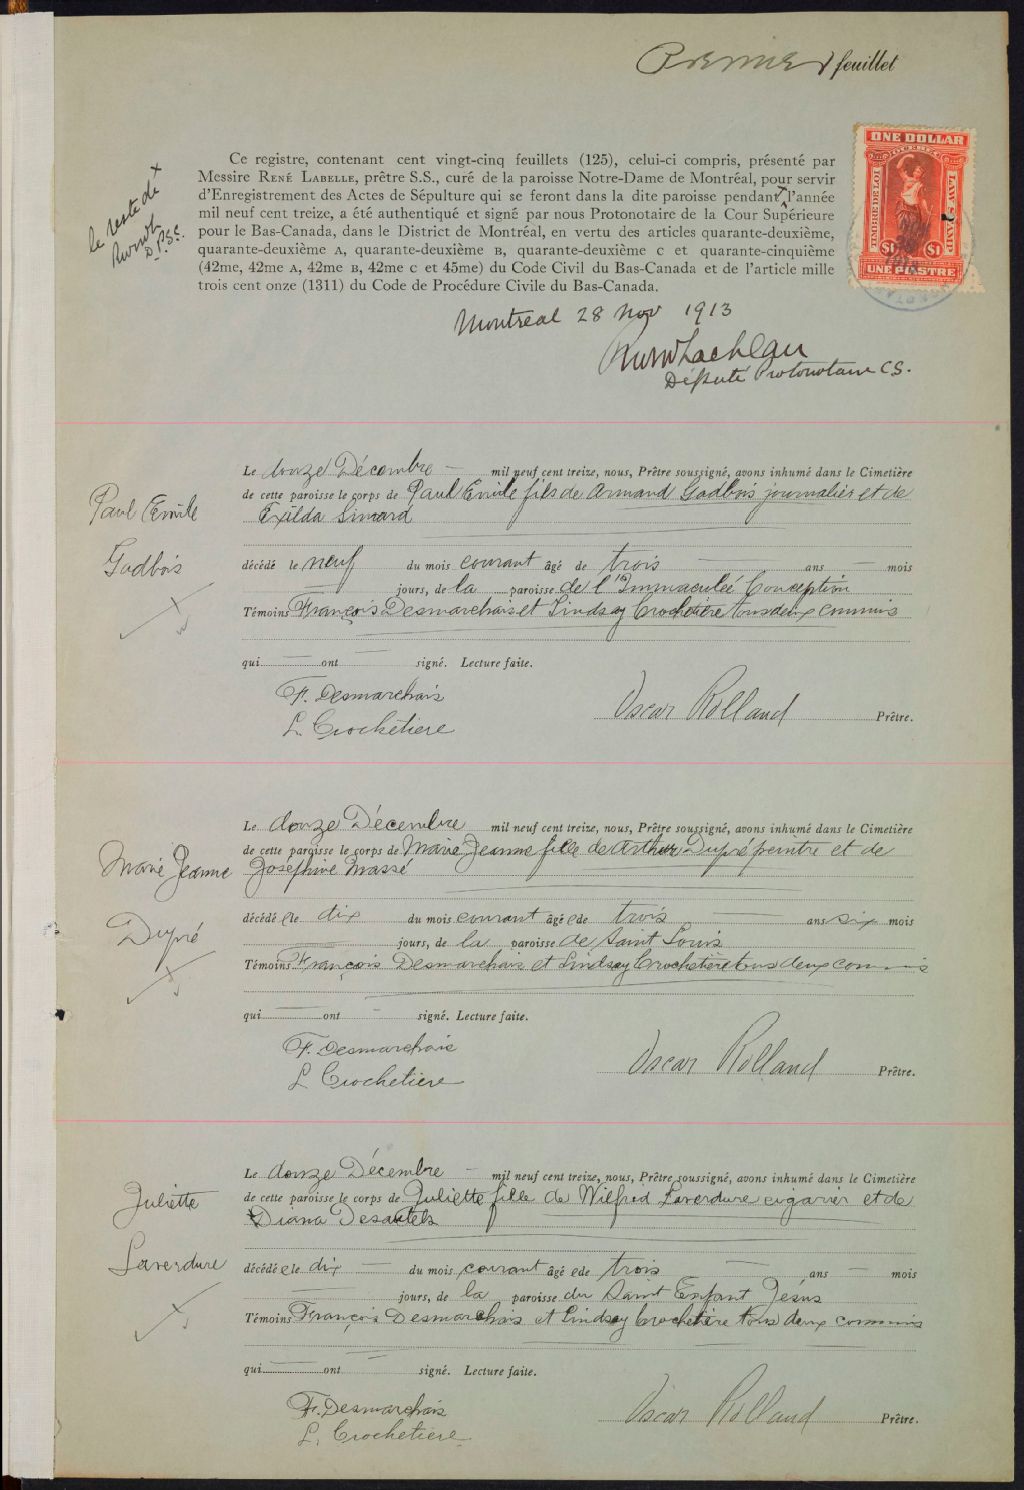 Premier feuillet
ONE DOLLAR
QUEBEC
TIMBRE DE LOI
LAW STAMP
$1 $1
UNE PIASTRE
le reste de
Ce registre, contenant cent vingt-cinq feuillets (125), celui-ci compris, présenté par
Messire RENÉ LABELLE, prêtre S.S., curé de la paroisse Notre-Dame de Montréal, pour servir
d'Enregistrement des Actes de Sépulture qui se feront dans la dite paroisse pendant l'année
mil neuf cent treize, a été authentiqué et signé par nous Protonotaire de la Cour Supérieure
pour le Bas-Canada, dans le District de Montréal, en vertu des articles quarante-deuxième,
quarante-deuxième A, quarante-deuxième B, quarante-deuxième C et quarante-cinquième
(42me, 42me A, 42me B, 42me C et 45me) du Code Civil du Bas-Canada et de l'article mille
trois cent onze (1311) du Code de Procédure Civile du Bas-Canada.
Montreal 28 Nov 1913
Député Protonotaire C.S.
Paul Emile
Godbois
Le douze Décembre — mil neuf cent treize, nous, Prêtre soussigné, avons inhumé dans le Cimetière
de cette paroisse le corps de Paul Emile fils de Armand Godbois journalier et de
Exilda Simard
décédé le neuf du mois courant âgé de trois — ans — mois
— jours, de la paroisse de l'Immaculée Conception
Témoins François Desmarchais et Lindsay Crochetière tous deux commis
qui — ont — signé. Lecture faite.
F. Desmarchais
L. Crochetiere
Oscar Rolland Prêtre.
Marie Jeanne
Dupré
Le douze Décembre mil neuf cent treize, nous, Prêtre soussigné, avons inhumé dans le Cimetière
de cette paroisse le corps de Marie Jeanne fille de Arthur Dupré peintre et de
Joséphine Massé
décédée le dix du mois courant âgée de trois — ans six mois
jours, de la paroisse de Saint Louis
Témoins François Desmarchais et Lindsay Crochetière tous deux commis
qui — ont — signé. Lecture faite.
F. Desmarchais
L. Crochetiere
Oscar Rolland Prêtre.
Juliette
Laverdure
Le douze Décembre — mil neuf cent treize, nous, Prêtre soussigné, avons inhumé dans le Cimetière
de cette paroisse le corps de Juliette fille de Wilfrid Laverdure cigarier et de
Diana Desautels
décédée le dix — du mois courant âgée de trois — ans — mois
— jours, de la paroisse du Saint Enfant Jésus
Témoins François Desmarchais et Lindsay Crochetière tous deux commis
qui — ont — signé. Lecture faite.
F. Desmarchais
L. Crochetiere
Oscar Rolland Prêtre.